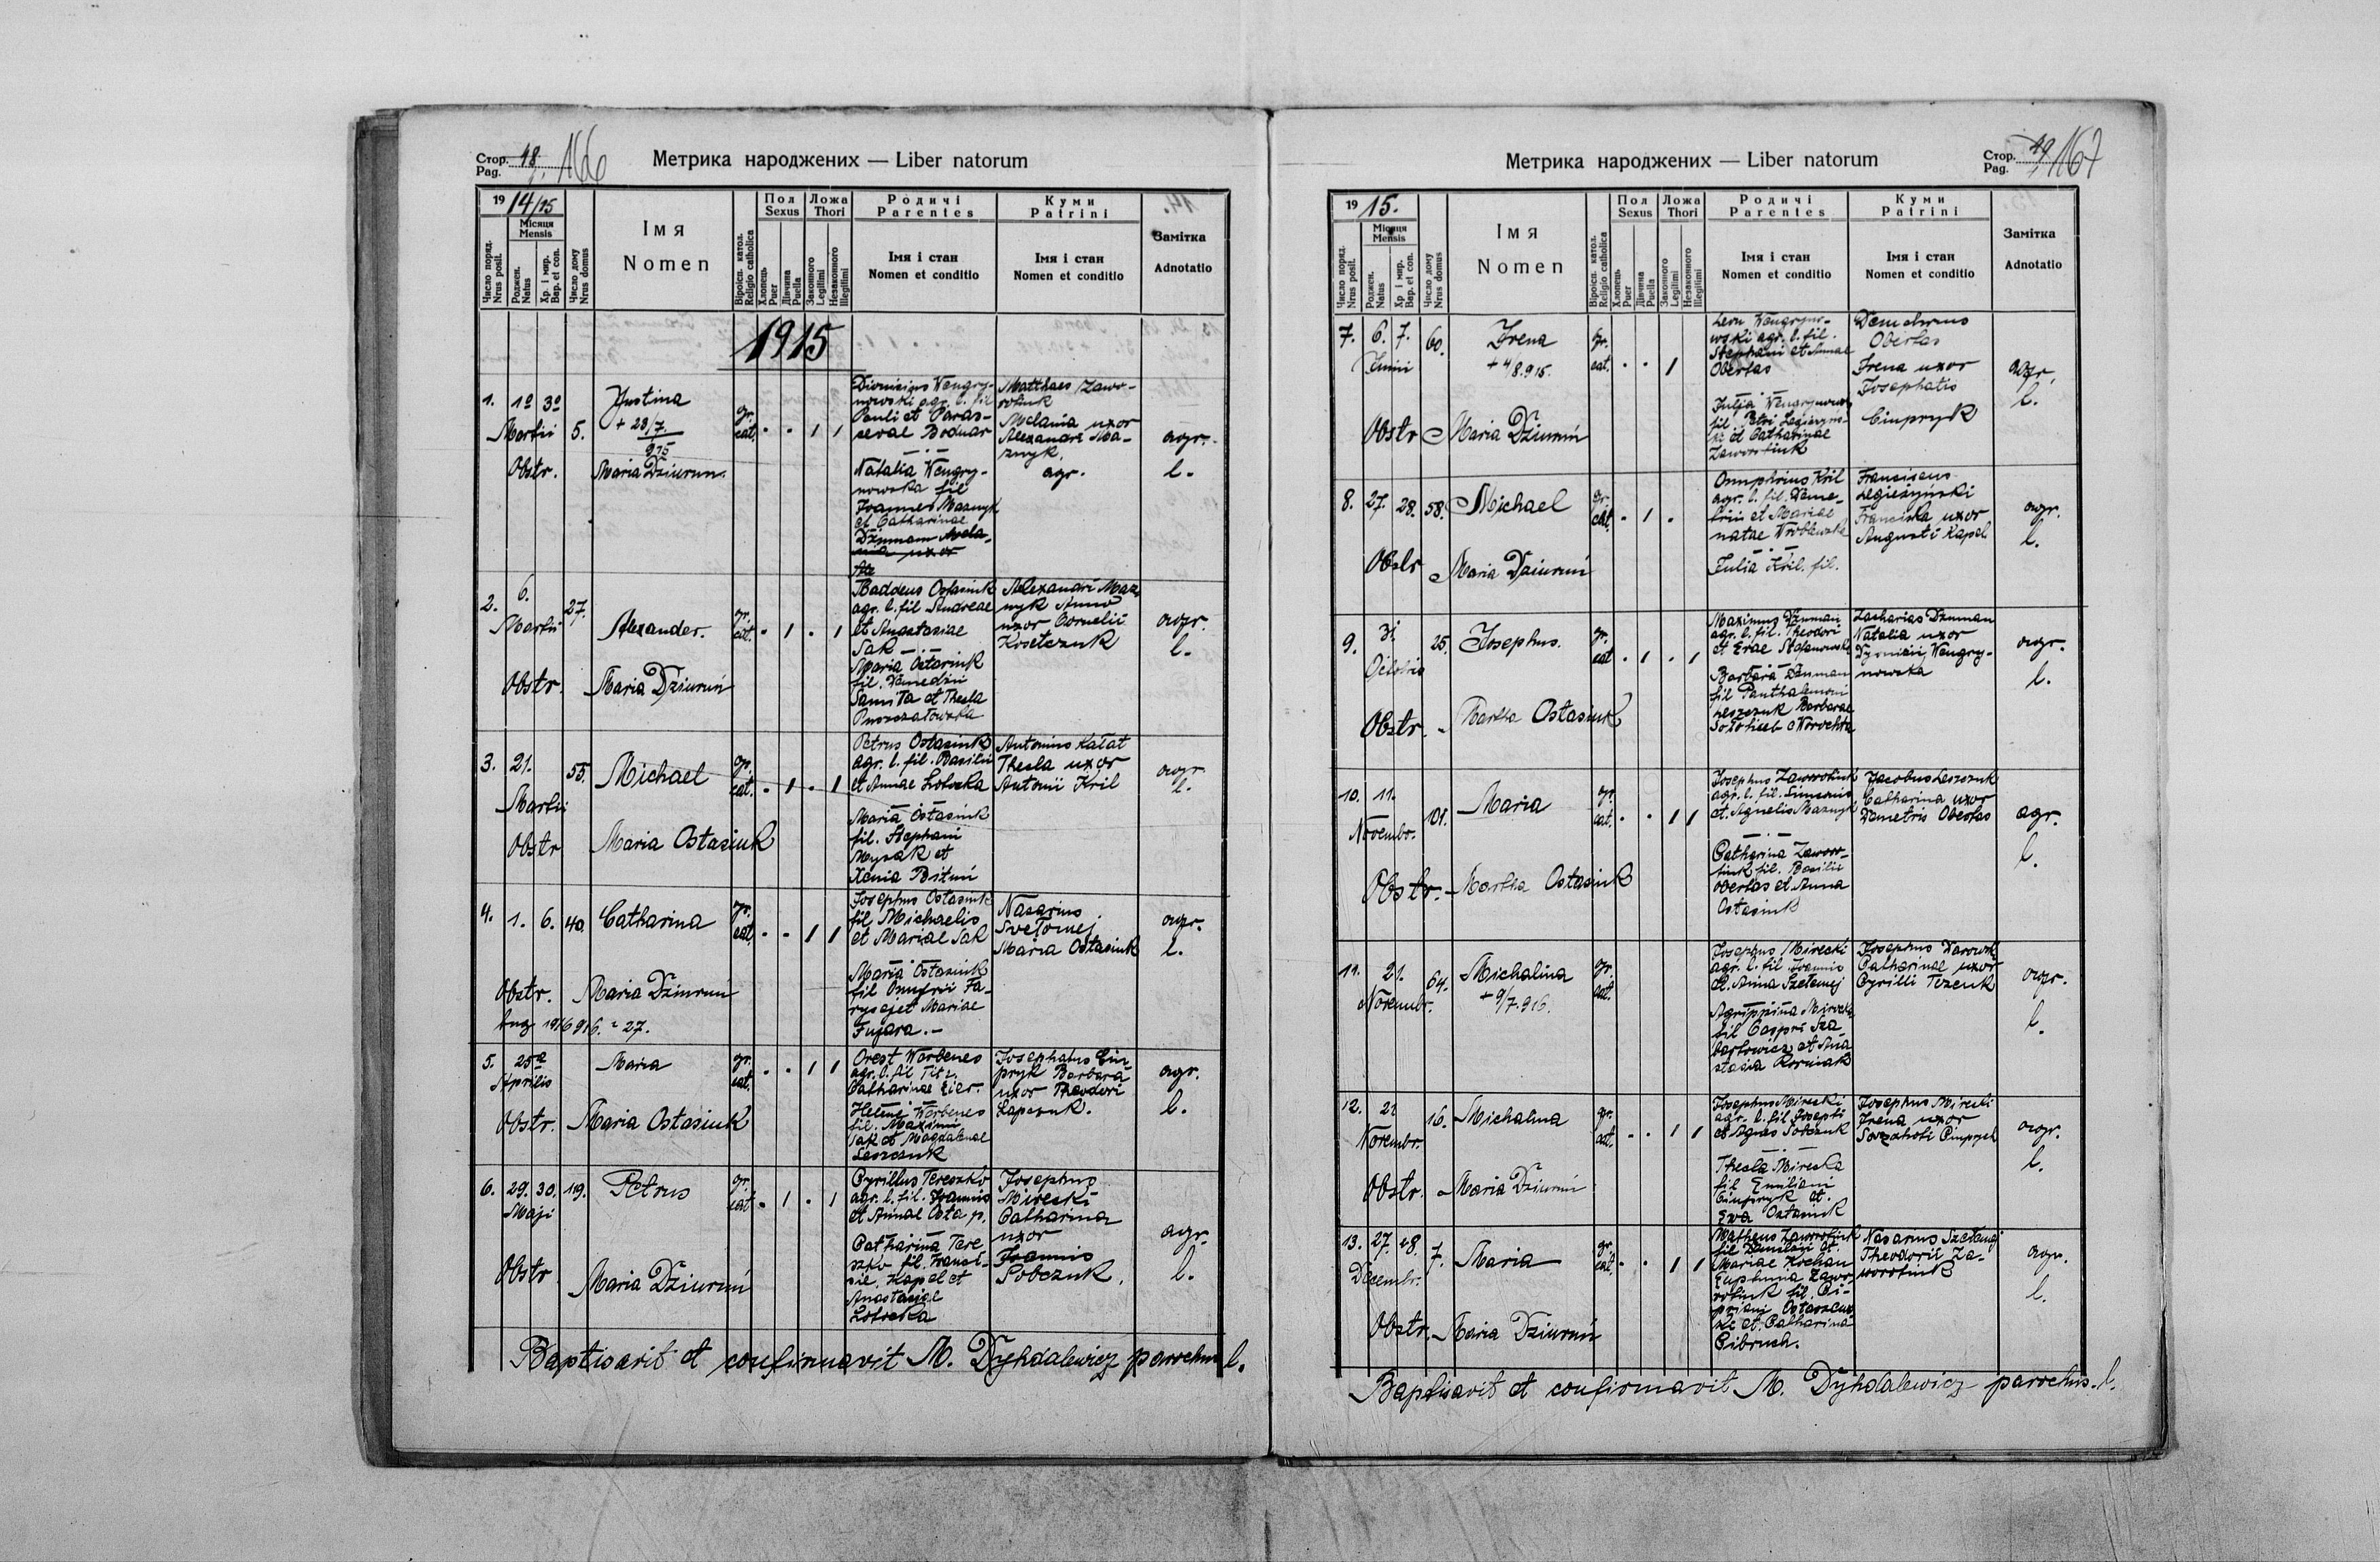 Стор. 18. 166
Pag.
Метрика народжених — Liber natorum
19 14/15
Місяця
Mensis
Число поряд.
Nrus posit.
Роджен.
Natus
Хр. і мир.
Bap. et con.
Число дому
Nrus domus
Імя
Nomen
Віроісп. катол.
Religio catholica
Пол
Sexus
Хлопець
Puer
Дівчина
Puella
Ложа
Thori
Законного
Legitimi
Незаконного
Illegitimi
Родичі
Parentes
Імя і стан
Nomen et conditio
Куми
Patrini
Імя і стан
Nomen et conditio
Замітка
Adnotatio
1915
1. 1º 3º
Martii 5.
Justina
+ 28/7
915
gr.
cat. . . 1 1
Obstr. Maria Dziurun.
Dionisius Wengry-
nowski agr. l. fil
Pauli et Paras-
sevae Bodnar
Natalia Wengry-
nowska fil
Joannes Maznyk
et Catharinae
Dżuman Mela-
nia uxor
Matthaes Zawo-
rotiuk
Melania uxor
Alexandri Ma-
znyk.
agr.
agr.
l.
2. 6.
Martii 27.
Alexander.
gr.
cat. . 1 . 1
Obstr. Maria Dziurun
Baddeus Ostasiuk
agr. l. fil Andreae
et Anastasiae
Sak
Maria Ostasiuk
fil.
et Thecla
Alexandri Maz-
nyk
uxor Cornelii
agr.
l.
3. 21. 55.
Martii
Michael
gr.
cat. . 1 . 1
Obstr Maria Ostasiuk
Petrus Ostasiuk
agr. l. fil. Basilii
et Annae Łotocka
Maria Ostasiuk
fil. Stephani
Mysak et
Xenia
Antonius Kałat
Thecla uxor
Antonii Kril
agr.
l.
4. 1. 6. 40.
Catharina
gr.
cat. . . 1 1
Obstr. Maria Dziurun
916. 27.
Josephus Ostasiuk
fil. Michaelis
et Mariae Sak
Maria Ostasiuk
fil Onufrii Fa-
et Mariae
Fujara.
Nazarius
Maria Ostasiuk
agr.
l.
5. 25ª
Aprilis
Maria
gr.
cat. . . 1 1
Obstr. Maria Ostasiuk
Orest Werbenec
agr. l. fil
Catharinae
Werbenec
fil. Maximi
et Magdalenae
Leszczuk
Josephatus Cim-
pryk Barbara
uxor Theodori
Łapczuk.
agr.
l.
6. 29. 30. 119.
Maji
Petrus
gr.
cat . 1 . 1
Obstr Maria Dziurun
Cyrillus Tereszko
agr. l. fil. Joannis
et Annae Osta p.
Catharina Tere
szko fil. Franci-
sci Kapel et
Anastasiae
Łotocka
Josephus
Mirecki
Catharina
uxor
Joannis
Sobczuk.
agr.
l.
Baptisavit et confirmavit M. Dyhdalewicz parochus l.
Стор. 19 167
Pag.
Метрика народжених — Liber natorum
19 15.
Місяця
Mensis
Число поряд.
Nrus posit.
Роджен.
Natus
Хр. і мир.
Bap. et con.
Число дому
Nrus domus
Імя
Nomen
Віроісп. катол.
Religio catholica
Пол
Sexus
Хлопець
Puer
Дівчина
Puella
Ложа
Thori
Законного
Legitimi
Незаконного
Illegitimi
Родичі
Parentes
Імя і стан
Nomen et conditio
Куми
Patrini
Імя і стан
Nomen et conditio
Замітка
Adnotatio
7. 6. 7. 60.
Junii
Irena
+ 4/8.915.
gr.
cat. . . 1
Obstr Maria Dziurun
Leon Wengryno-
wski agr. l. fil.
Stephani et Annae
Obertas
Julia Wengrynows
fil. Petri
et Catharinae
Zaworotiuk
Obertas
Irena uxor
Josephatis
Cimpryk
agr.
l.
8. 27. 28. 58.
Michael
gr.
cat. . 1 .
Obstr Maria Dziurun
Onuphrius Kril
agr. l. fil. Deme-
trii et Mariae
natae
Julia Kril. fil.
Franciscus
Franciska uxor
Augusti Kapel
agr.
l.
9. 31 25.
Octobris
Josephus.
gr.
cat . 1 . 1
Obstr. Martha Ostasiuk
Maximus Dżuman
agr. l. fil. Theodori
et Evae
Barbara Dżuman
fil Panthalemoni
Leszczuk Barbarae
Zacharias Dżuman
Natalia uxor
Wengry-
nowska
agr.
l.
10. 11. 101.
Novembr.
Maria
gr.
cat. . . 1 1
Obstr. - Martha Ostasiuk
Josephus Zaworotiuk
agr. l. fil. Simeonis
et Agnetis Maznyk
Catharina Zawor-
tiuk fil. Basilii
Obertas et Anna
Ostasiuk
Jacobus Leszczuk
Catharina uxor
Demetris Obertas
agr.
l.
11. 21. 64.
Novembr.
Michalina
+ 9/7.916.
gr.
cat.
Josephus Mirecki
agr. l. fil Joannis
et. Anna
Agrippina Mirecka
fil
et Ana
stasia Korniak
Josephus
Catharinae uxor
Cyrilli
agr.
l.
12. 21 16.
Novembr.
Michalina
gr.
cat. . . 1 1
Obstr. Maria Dziurun
Josephus Mirecki
agr. l. fil Josephi
et Agnes Sobczuk
Thecla Mirecka
fil Emiliani
Cimpryk et.
Ewa Ostasiuk
Josephus Mirecki
Irena uxor
Cimpryk
agr.
l.
13. 27. 28. 7.
Decembr.
Maria
gr.
cat. . . 1 1
Obstr. Maria Dziurun
Matheus Zaworotiuk
fil
Mariae Kochan
Euphimia Zawo-
rotiuk fil. Ci-
priani
et. Catharina
Cibruch.
Nazarius
Theodorii Za-
worotiuk
agr.
l.
Baptisavit et confirmavit M. Dyhdalewicz parochus. l.